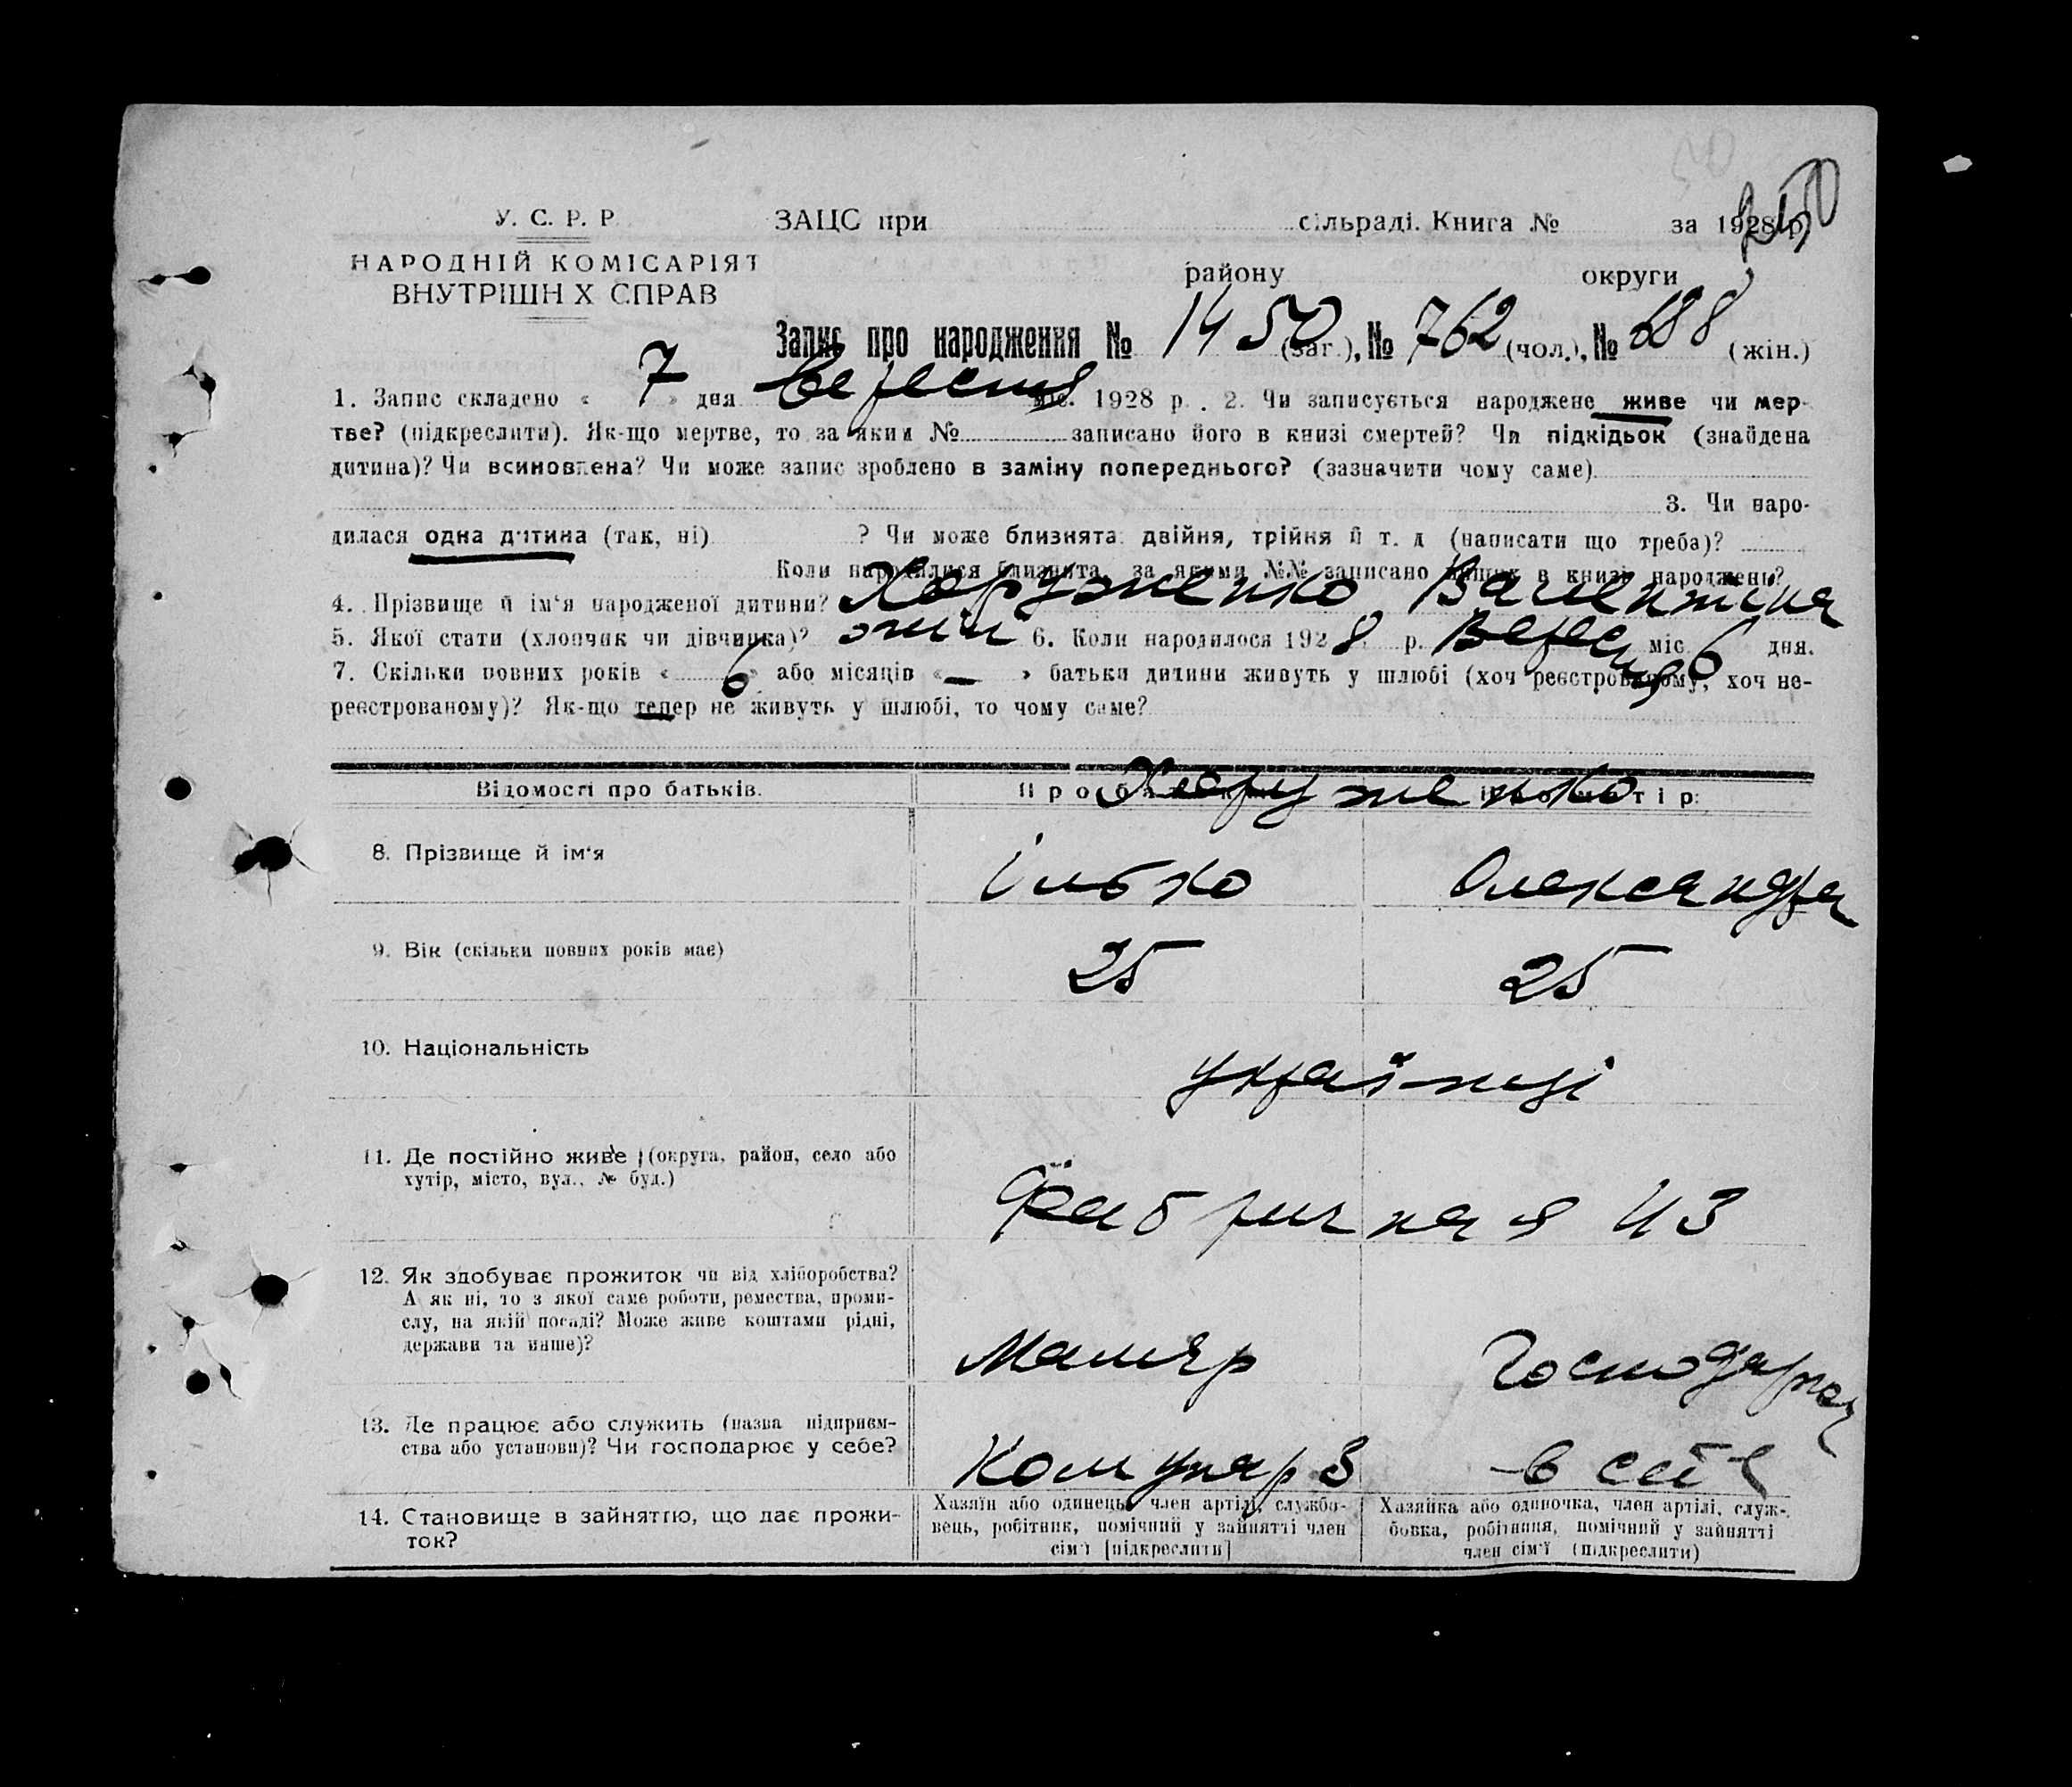 250
У. С. Р. Р. ЗАЦС при сільраді. Книга № за 1928 р.
НАРОДНІЙ КОМІСАРІЯТ району округи
ВНУТРІШНІХ СПРАВ
Запис про народження № 1450 (заг.), № 762 (чол.), № 688 (жін.)
1. Запис складено « 7 » дня Вересня міс. 1928 р. 2. Чи записується народжене живе чи мер-
тве? (підкреслити). Як-що мертве, то за яким № записано його в книзі смертей? Чи підкідьок (знайдена
дитина)? Чи всиновлена? Чи може запис зроблено в заміну попереднього? (зазначити чому саме)
3. Чи наро-
дилася одна дитина (так, ні) ? Чи може близнята: двійня, трійня й т. д (написати що треба)?
Коли народилися близнята, за якими №№ записано інших в книзі народжень?
4. Прізвище й ім‘я народженої дитини? Харуженко Валентина
5. Якої стати (хлопчик чи дівчинка)? жін 6. Коли народилося 1928 р. Вересня міс. 6 дня.
7. Скільки повних років « 6 » або місяців « — » батьки дитини живуть у шлюбі (хоч реєстрованому, хоч не-
реєстрованому)? Як-що тепер не живуть у шлюбі, то чому саме?
Відомості про батьків. Про батька: Про матір:
Харуженко
8. Прізвище й ім‘я Ілько Олександра
9. Вік (скільки повних років має) 25 25
10. Національність українці
11. Де постійно живе (округа, район, село або
хутір, місто, вул., № буд.)
Фабричная 43
12. Як здобуває прожиток чи від хліборобства?
А як ні, то з якої саме роботи, ремества, проми-
слу, на якій посаді? Може живе коштами рідні,
держави та инше)?
Маляр Господарка
13. Де працює або служить (назва підприєм-
ства або установи)? Чи господарює у себе?
Комунар З в себе
14. Становище в зайняттю, що дає прожи-
ток?
Хазяїн або одинець, член артілі, службо-
вець, робітник, помічний у зайнятті член
сім‘ї [підкреслити]
Хазяйка або одиночка, член артілі, служ-
бовка, робітниця, помічний у зайнятті
член сім‘ї (підкреслити)